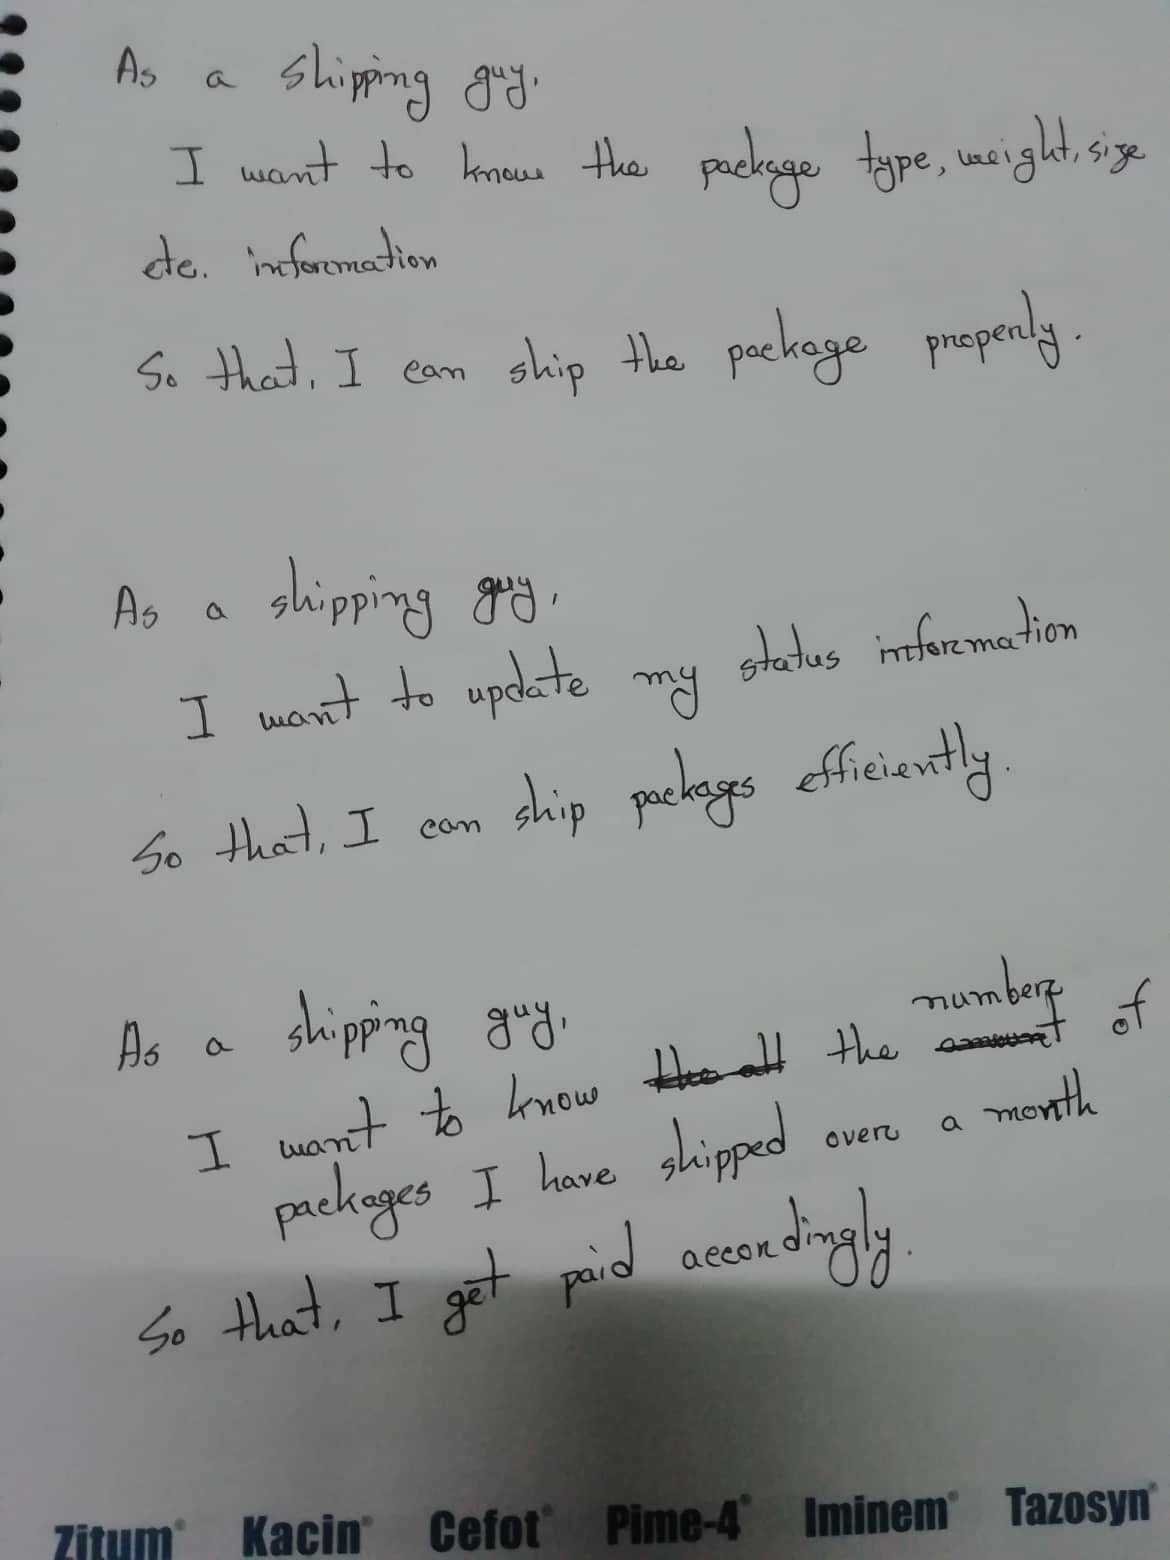 As a shipping guy,
I want to know the package type, weight, size
etc. information
So that, I can ship the package properly.
As a shipping guy,
I want to update my status information
So that, I can ship packages efficiently.
As a shipping guy,
I want to know the all the number amount of
packages I have shipped over a month
So that, I get paid accordingly.
Zitum® Kacin® Cefot® Pime-4® Iminem® Tazosyn®